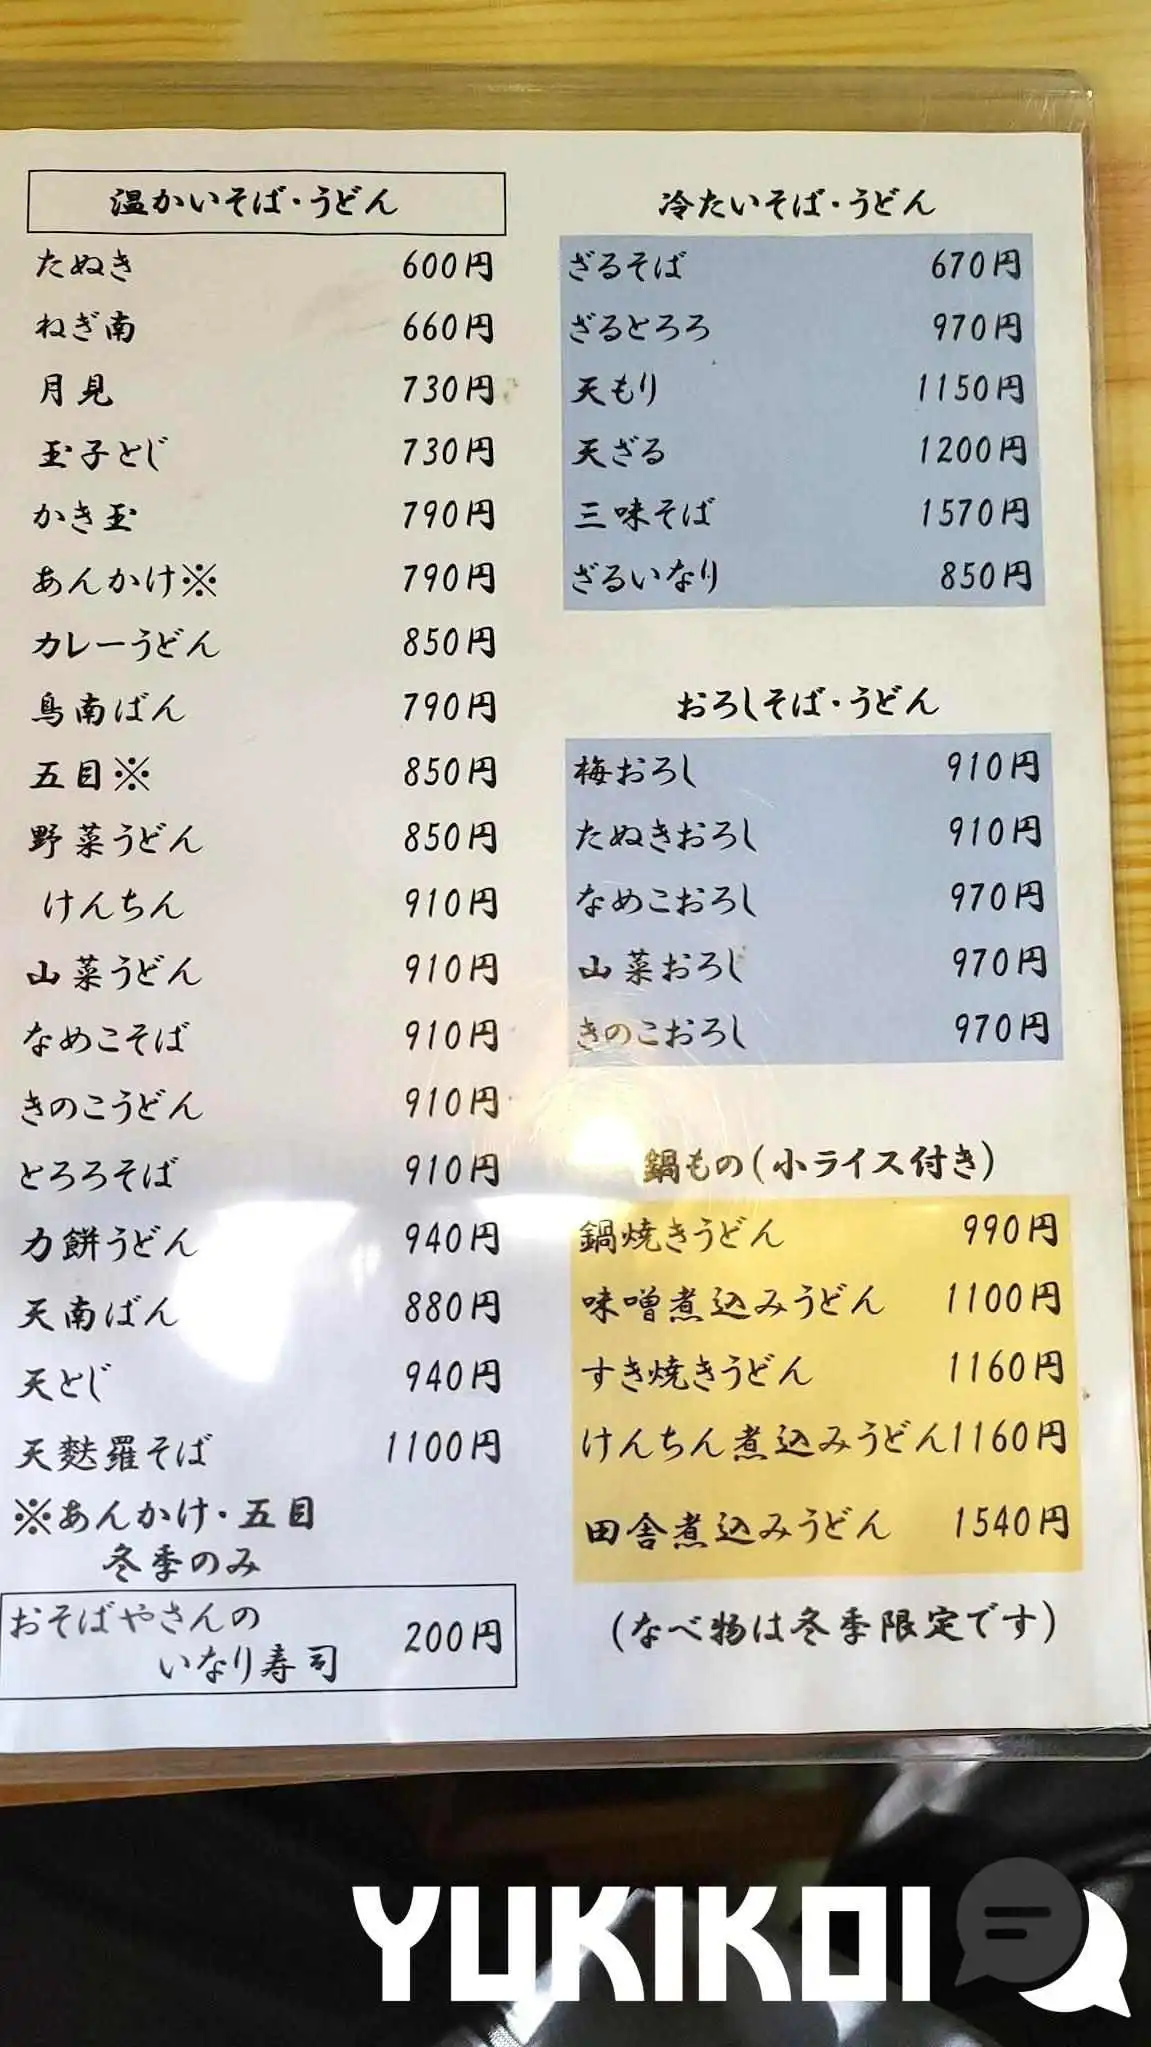 温かいそば・うどん
たぬき 600円
ねぎ南 660円
月見 730円
玉子とじ 730円
かき玉 790円
あんかけ※ 790円
カレーうどん 850円
鳥南ばん 790円
五目※ 850円
野菜うどん 850円
けんちん 910円
山菜うどん 910円
なめこそば 910円
きのこうどん 910円
とろろそば 910円
力餅うどん 940円
天南ばん 880円
天とじ 940円
天麩羅そば 1100円
※あんかけ・五目
冬季のみ
おそばやさんの
いなり寿司 200円
冷たいそば・うどん
ざるそば 670円
ざるとろろ 970円
天もり 1150円
天ざる 1200円
三味そば 1570円
ざるいなり 850円
おろしそば・うどん
梅おろし 910円
たぬきおろし 910円
なめこおろし 970円
山菜おろし 970円
きのこおろし 970円
鍋もの(小ライス付き)
鍋焼きうどん 990円
味噌煮込みうどん 1100円
すき焼きうどん 1160円
けんちん煮込みうどん 1160円
田舎煮込みうどん 1540円
(なべ物は冬季限定です)
YUKIKOI